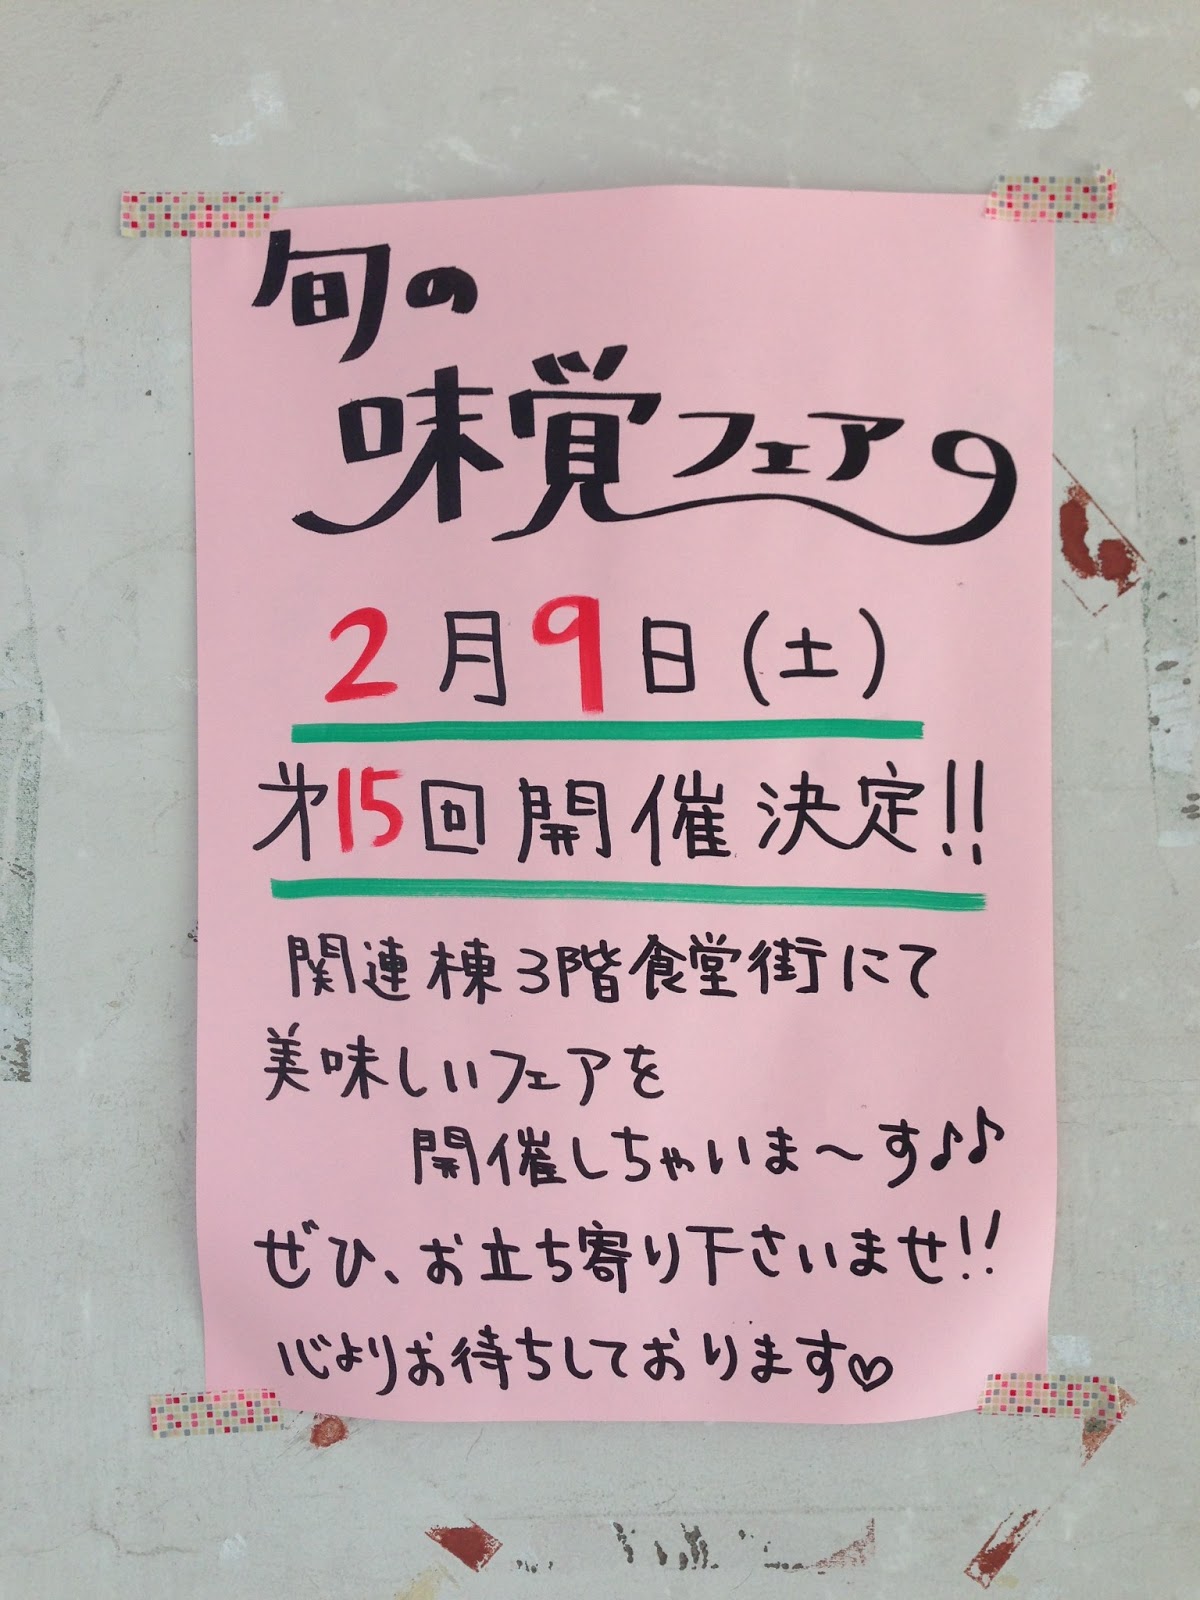 旬の
味覚フェア
2月9日(土)
第15回開催決定!!
関連棟3階食堂街にて
美味しいフェアを
開催しちゃいま〜す♪♪
ぜひ、お立ち寄り下さいませ!!
心よりお待ちしております♡